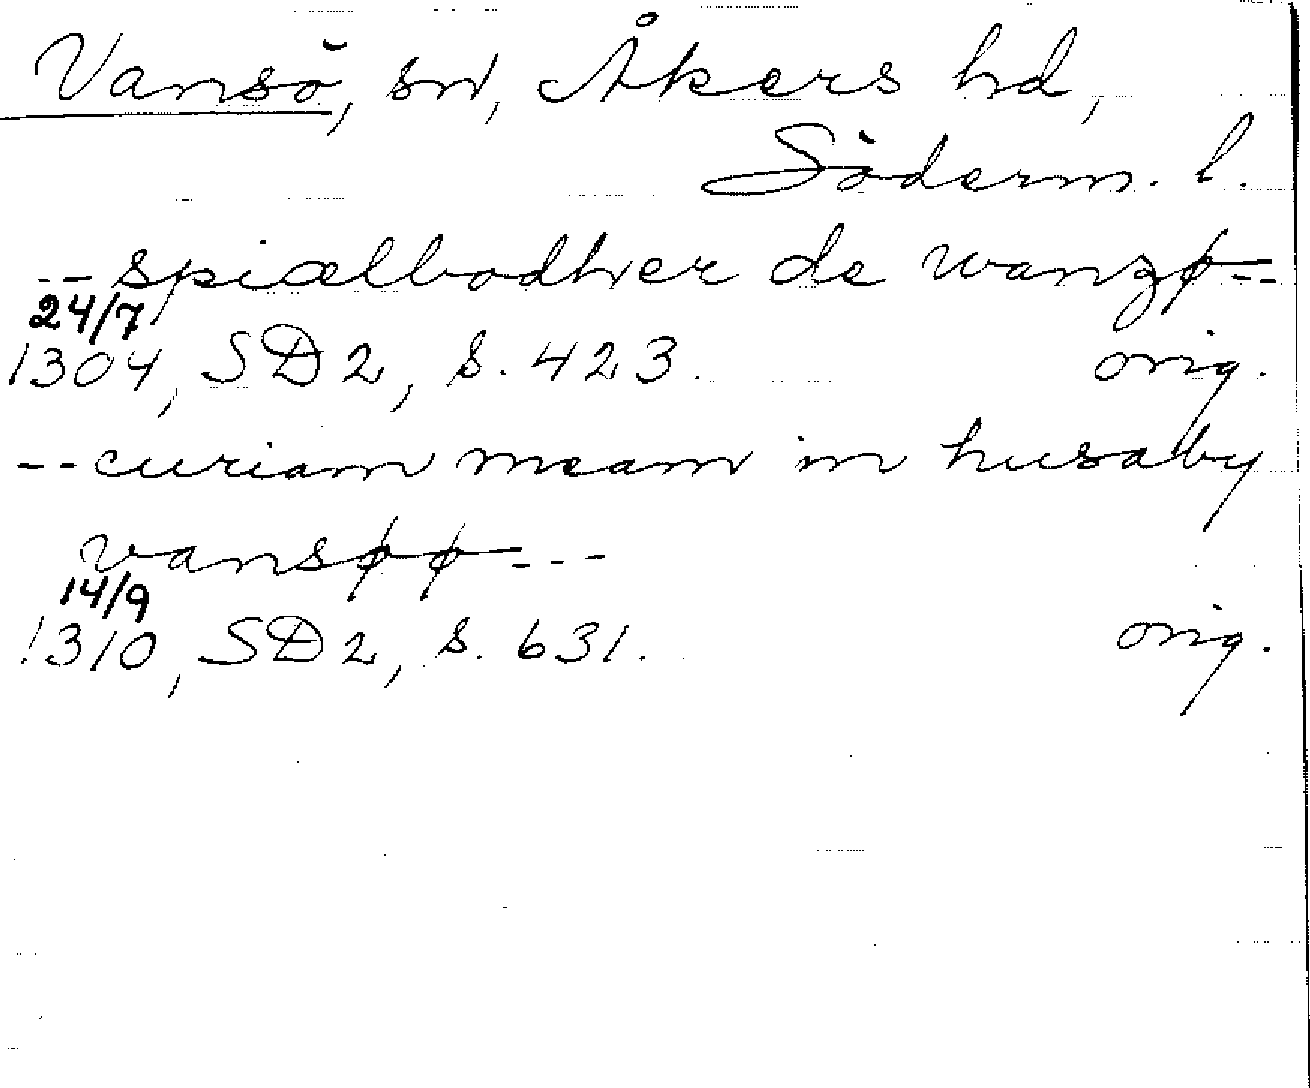 Vansö, sn, Åkers hd,
Söderm. l.
-- spiælbodher de wanzø --
24/7
1304, SD 2, s. 423. orig.
-- curiam meam in husaby
vansøø ---
14/9
1310, SD 2, s. 631. orig.